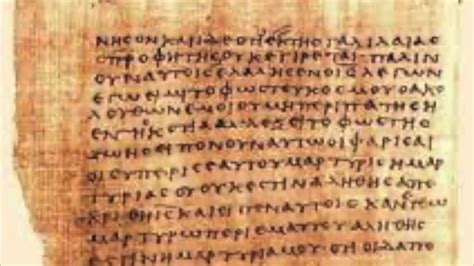 ΝΗϹΟΝ ΚΑΙ ΙΔΕ ΟΤΙ ΕΚ ΤΗϹ ΓΑΛΙΛΑΙΑϹ
ΠΡΟΦΗΤΗϹ ΟΥΚ ΕΓΙΡΕΤΑΙ ΠΑΛΙΝ
ΟΥΝ ΑΥΤΟΙϹ ΕΛΑΛΗϹΕΝ Ο ΙϹ ΛΕΓΩΝ
ΕΓΩ ΕΙΜΙ ΤΟ ΦΩϹ ΤΟΥ ΚΟϹΜΟΥ Ο ΑΚΟ
ΛΟΥΘΩΝ ΕΜΟΙ ΟΥ ΜΗ ΠΕΡΙΠΑΤΗϹΗ
ΕΝ ΤΗ ϹΚΟΤΙΑ ΑΛΛ ΕΞΕΙ ΤΟ ΦΩϹ ΤΗϹ
ΖΩΗϹ ΕΙΠΟΝ ΟΥΝ ΑΥΤΩ ΟΙ ΦΑΡΙϹΑΙ
ΟΙ ϹΥ ΠΕΡΙ ϹΕΑΥΤΟΥ ΜΑΡΤΥΡΙϹ Η ΜΑΡ
ΤΥΡΙΑ ϹΟΥ ΟΥΚ ΕϹΤΙΝ ΑΛΗΘΗϹ ΑΠΕ
ΚΡΙΘΗ ΙϹ ΚΑΙ ΕΙΠΕΝ ΑΥΤΟΙϹ ΚΑΝ ΕΓΩ
ΜΑΡΤΥΡΩ ΠΕΡΙ ΕΜΑΥΤΟΥ ΑΛΗΘΗϹ
ΕϹΤΙΝ Η ΜΑΡΤΥΡΙΑ ΜΟΥ ΟΤΙ ΟΙΔΑ ΠΟ